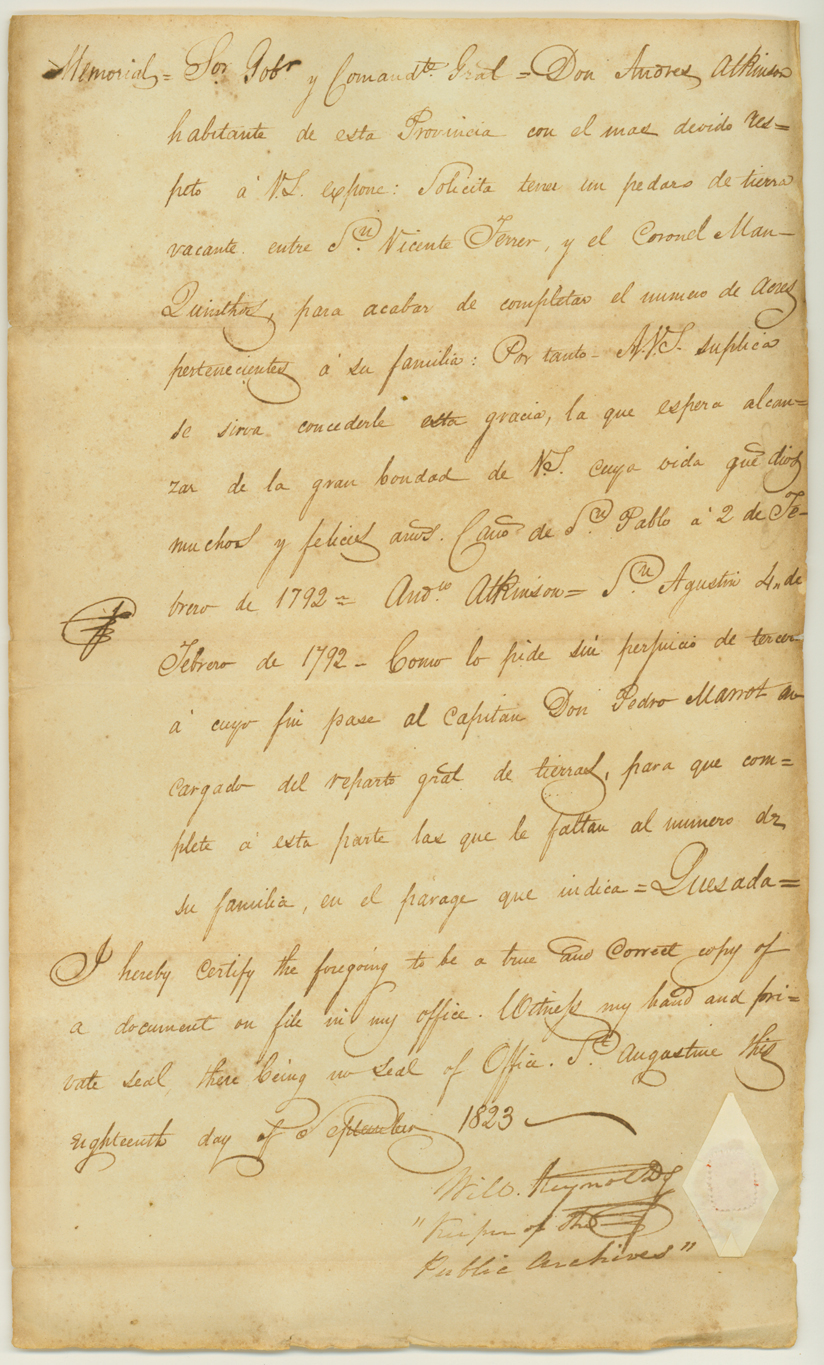 Memorial = Sor. Gobr y Comandte. Gral = Don Andres Atkinson
habitante de esta Provincia con el mas devido res=
peto á V.S. expone: Solicita tener un pedaso de tierra
vacante entre Sn. Vicente Ferrer, y el Coronel Man-
Quinthos, para acabar de completar el numero de acres
pertenecientes á su familia: Por tanto - A.V.S. suplica
se sirva concederle esta gracia, la que espera alcan=
zar de la gran bondad de V.S. cuya vida gue dios
muchos y felices años. Caño de Sn. Pablo á 2 de Fe-
brero de 1792 = Andco Atkinson = Sn. Agustin 4, de
Febrero de 1792 - Como lo pide sin perjuicio de tercero
á cuyo fin pase al Capitan Don Pedro Marrot en
cargado del reparto gral de tierras, para que com=
plete á esta parte las que le faltan al numero de
su familia, en el parage que indica = Quesada =
I hereby certify the foregoing to be a true and correct copy of
a document on file in my office. Witness my hand and pri=
vate seal, there being no seal of Office. St. Augustine this
eighteenth day of September 1823
Will. Reynolds
"Keeper of the
Public Archives"